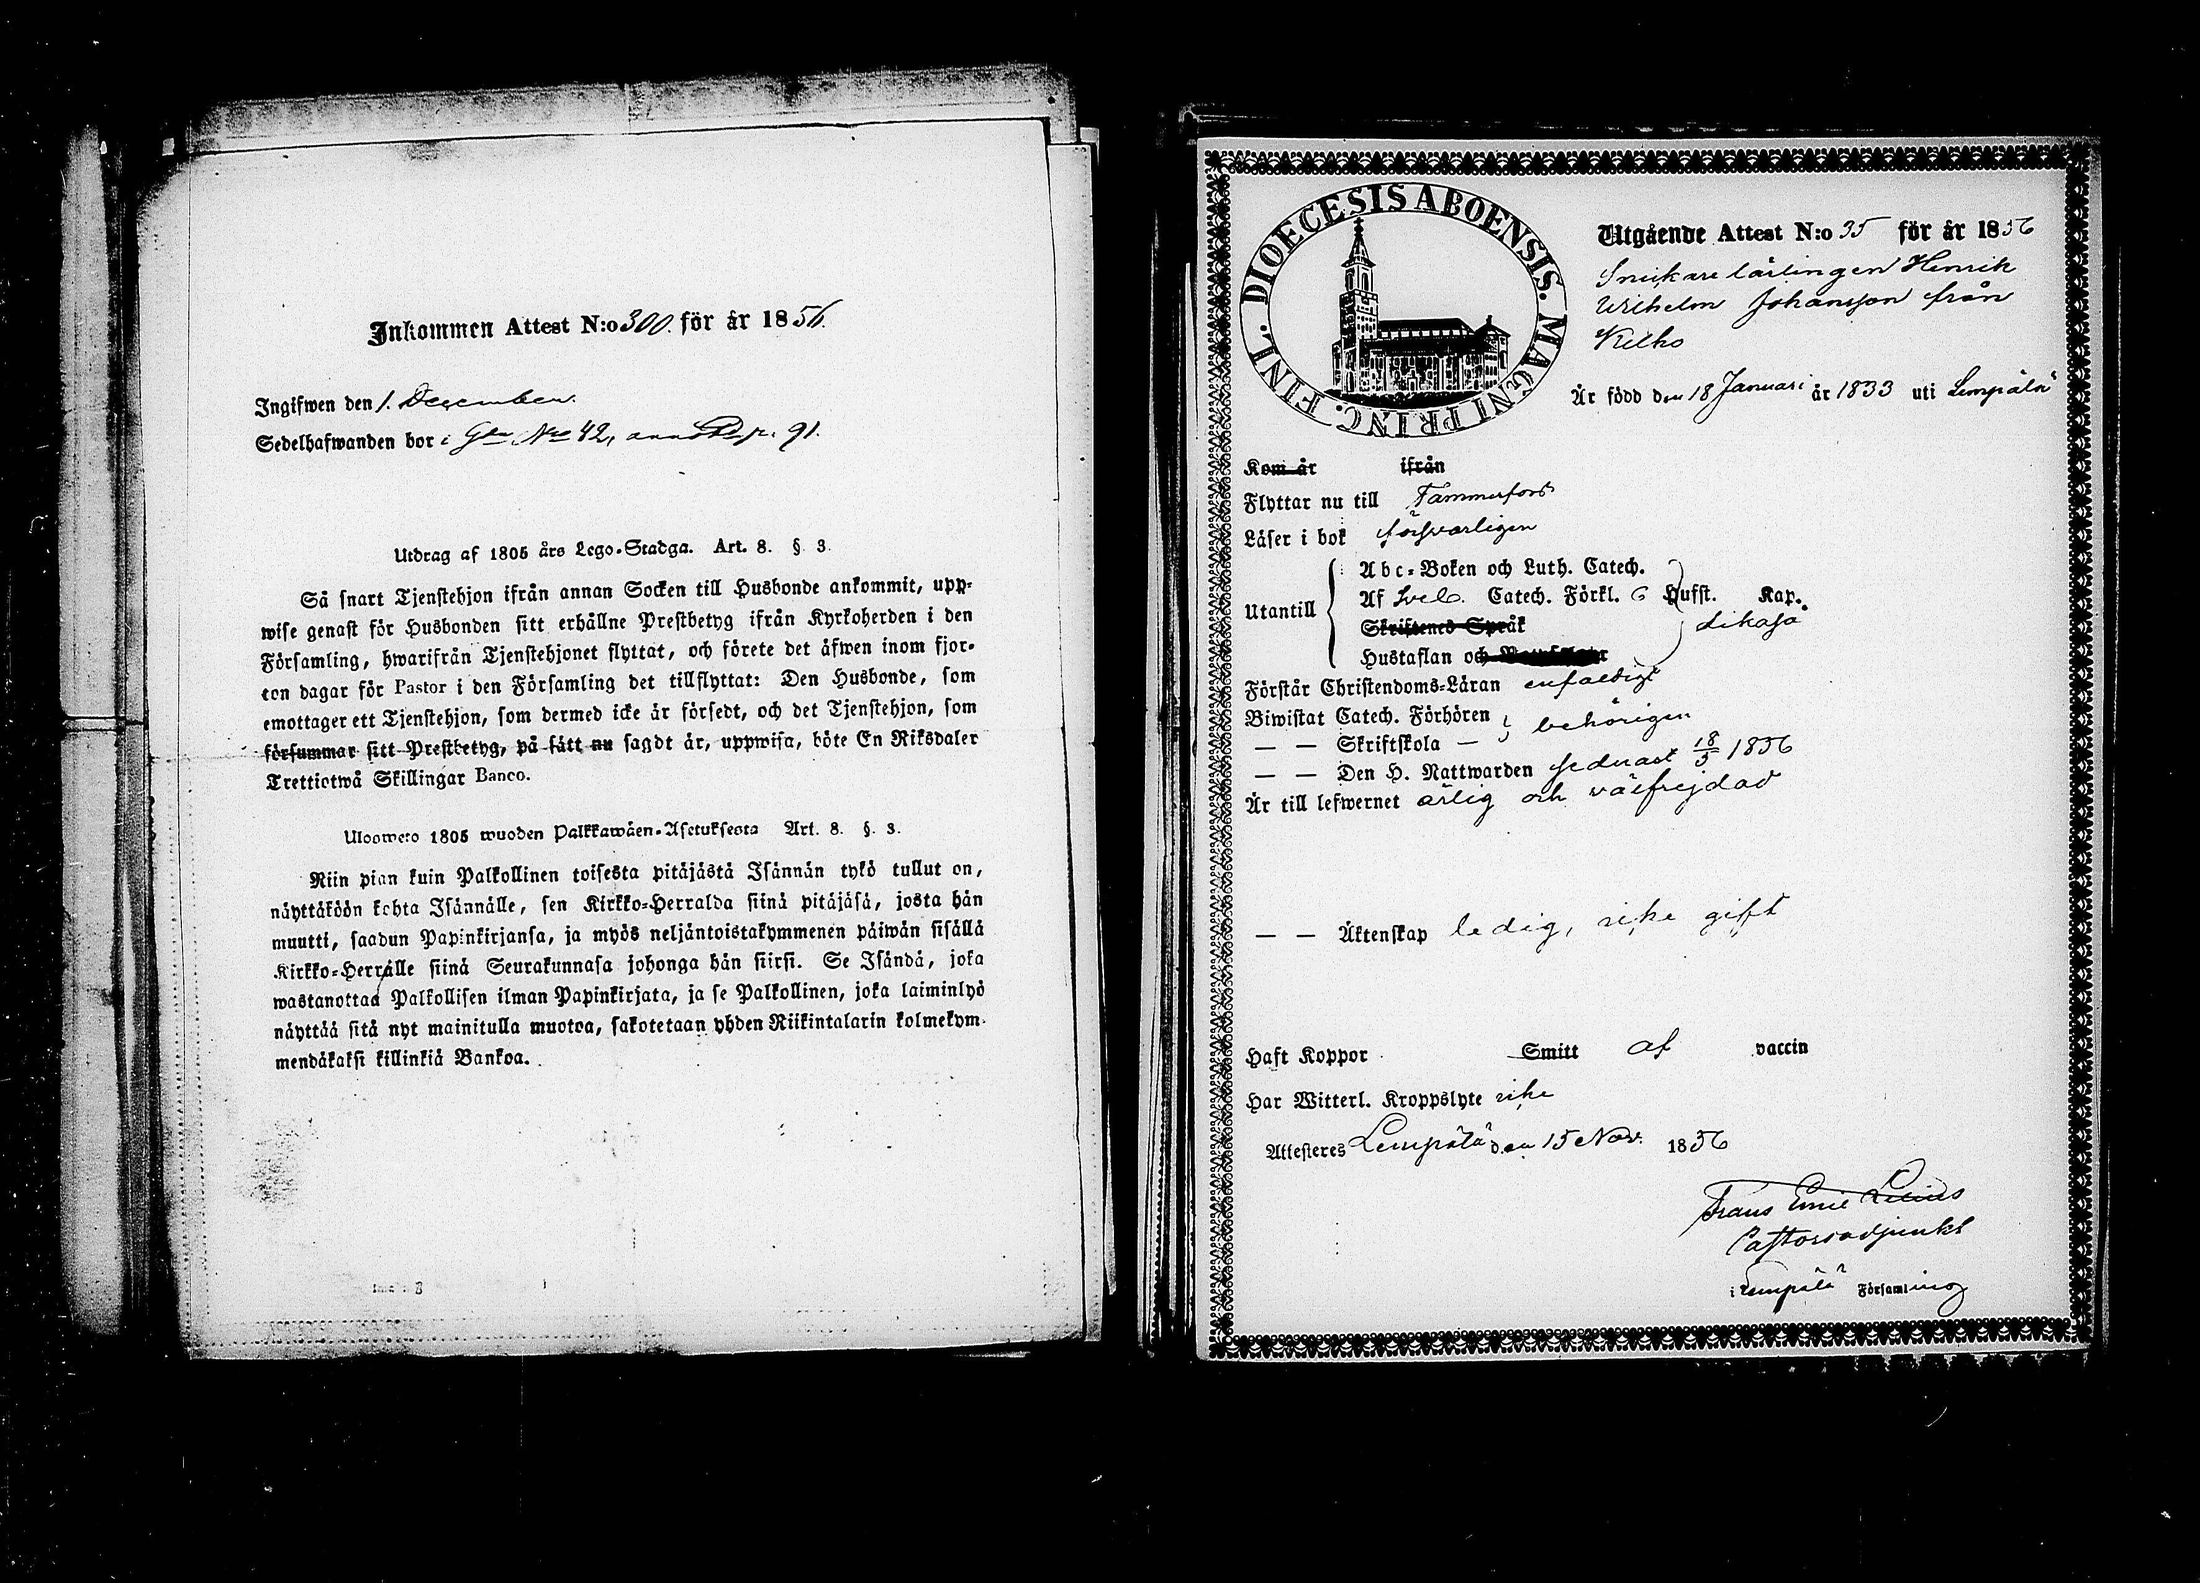 Inkommen Attest N:o 300. för år 1856.
Ingifwen den 1. December.
Sedelhafwanden bor i Gården Nro 42, pag. 91.
Utdrag af 1805 års Lego-Stadga. Art. 8. § 3.
Så snart Tjenstehjon ifrån annan Socken till Husbonde ankommit, upp-
wise genast för Husbonden sitt erhållne Prestbetyg ifrån Kyrkoherden i den
Församling, hwarifrån Tjenstehjonet flyttat, och förete det äfwen inom fjor-
ton dagar för Pastor i den Församling det tillflyttat: Den Husbonde, som
emottager ett Tjenstehjon, som dermed icke är försedt, och det Tjenstehjon, som
försummar sitt Prestbetyg, på sätt nu sagdt är, uppwisa, böte En Riksdaler
Trettiotwå Skillingar Banco.
Ulosweto 1805 wuoden Palkkawäen-Asetuksesta Art. 8. §. 3.
Niin pian kuin Palkollinen toisesta pitäjästä Isännän tykö tullut on,
näyttäköön kohta Isännälle, sen Kirkko-Herralda siinä pitäjäsä, josta hän
muutti, saadun Papinkirjansa, ja myös neljäntoistakymmenen päiwän sisällä
Kirkko-Herralle siinä Seurakunnasa johonga hän siirsi. Se Isändä, joka
wastanottaa Palkollisen ilman Papinkirjata, ja se Palkollinen, joka laiminlyö
näyttää sitä nyt mainitulla muotoa, sakotetaan yhden Riikintalarin kolmekym-
mendäkaksi killinkiä Bankoa.
FINL. DIOECESIS ABOENSIS. MAGNI PRINC.
Utgående Attest N:o 35 för år 1856
Snickare lärlingen Henrik
Wilhelm Johansson från
Kelho
Är född den 18 Januari år 1833 uti Lempälä
Kom år ifrån
Flyttar nu till Tammerfors
Läser i bok försvarligen
Utantill
Abc-Boken och Luth. Catech.
Af Sveb. Catech. Förkl. 6 Hufst. Kap.
Skriftenes Språk
likaså
Hustaflan och
Förstår Christendoms-Läran enfaldigt
Biwistat Catech. Förhören
behörigen
— — Skriftskola —
— — Den H. Nattwarden sednast 18/5 1856
Är till lefwernet ärlig och välfrejdad
— — Äktenskap ledig, icke gift
Haft Koppor Smitt af vaccin
Har Witterl. Kroppslyte icke
Attesteres Lempälä den 15 Nov. 1856
Frans Emil Lilius
Pastorsadjunkt
i Lempälä Församling